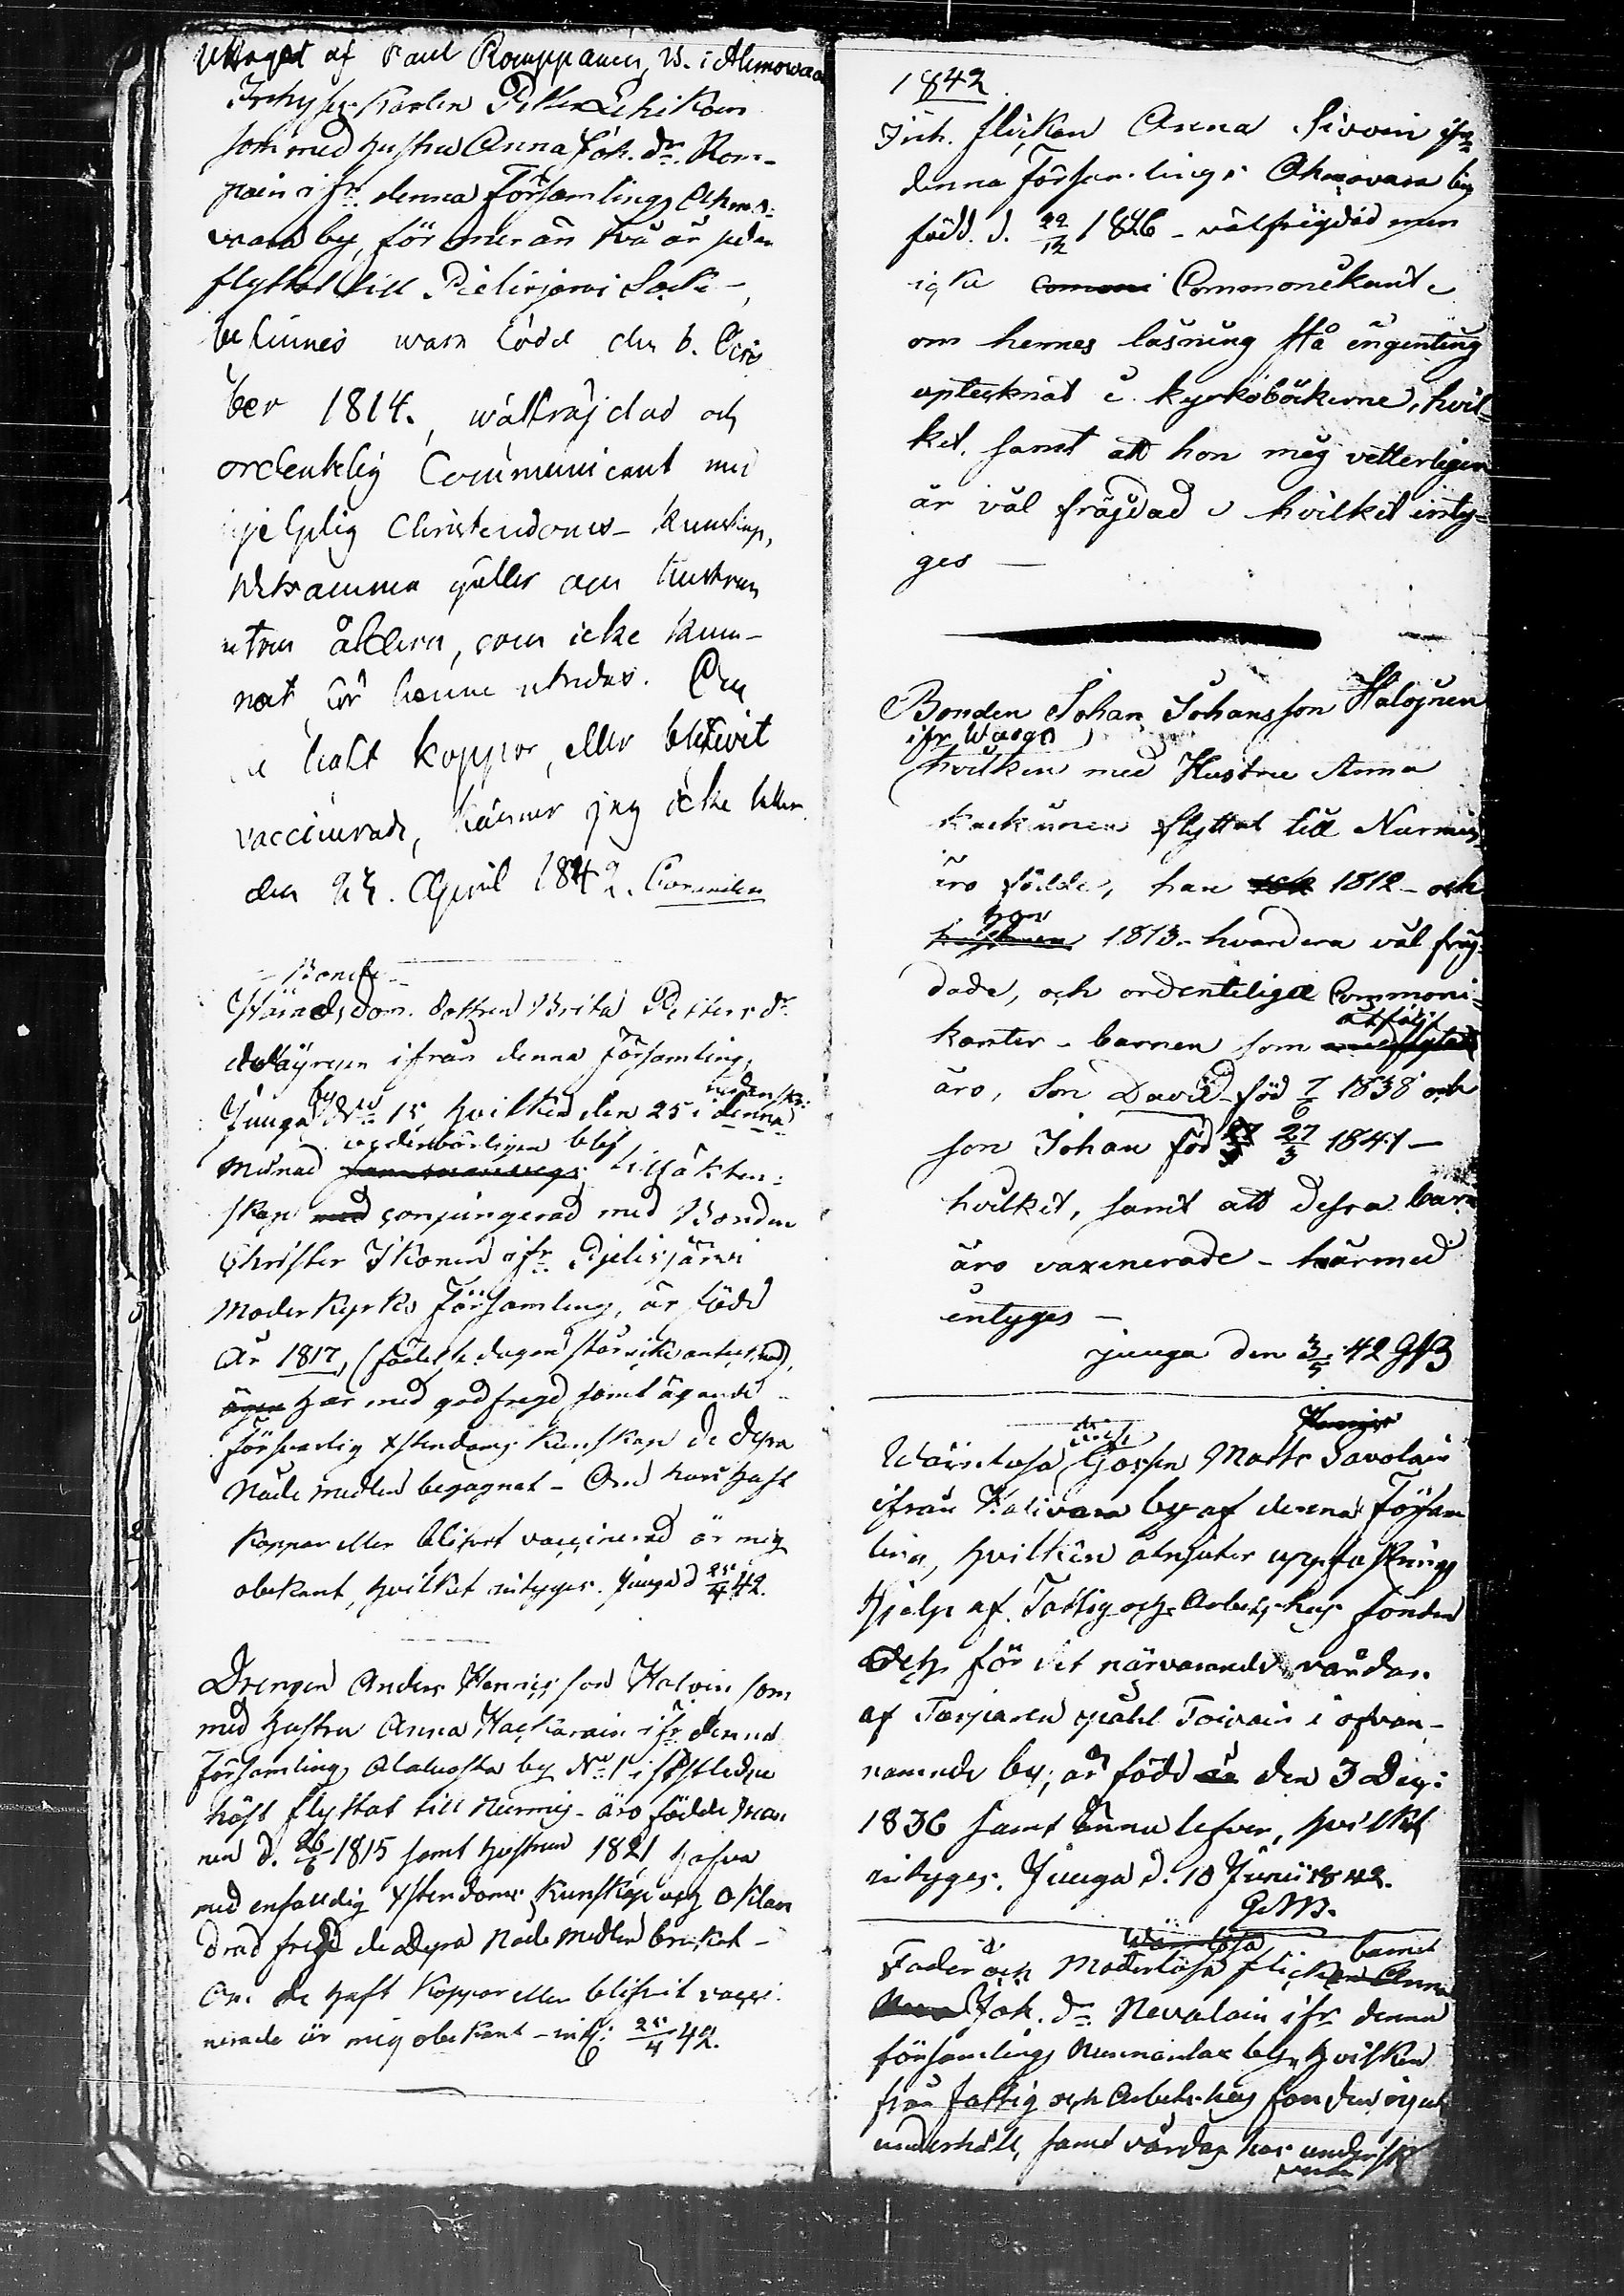 Uttaget af Paul Romppanen, B. i Ahmowaa
Inhyses Karlen Petter Lehikoin
som med hustru Anna Joh. dr. Rom-
pain ifr. denna Församlings Ahmo-
vaara by, för mer än två år sedan
flyttat till Pielisjervi Sokn,
befinnes wara född den 6.
ber 1814., wälfräjdad och
ordentelig Communicant med
hjelplig Christendoms-kunskap,
detsamma gäller om hustrun
utom åldern, som icke kun-
nat för henne utredas. Om
de haft koppor, eller blifwit
vaccinerade, känner jag icke heller.
den 23. April 1842.
Bonde
Häradsdom. dottren Brita Petters dr
ifrån denna Församling,
Juuga by No 15, hvilken den 25 i denna
månad vederbörligen blef till äkten-
skap med conjungerad med Bonden
Christer Ikonen ifr. Pielisjärvi
Moderkyrko Församling, är född
År 1817, (födelse dagen står icke antecknad),
har med god frejd samt ägande
försvarlig Xstendoms kunskap de dyra
Nåde medlen begagnat - Om hon haft
Koppor eller blifvit vaccinerad är mig
obekant, hvilket intyges. Juuga d 25/4 42.
Drengen Anders Hennigsson Halvin som
med hustru Anna Hackarain ifr. denna
Församlings Alaluosta by No 1 i sistledne
höst flyttat till Nurmis - äro födde man
nen d. 26/6 1815 samt hustrun 1821, hafva
med enfaldig Xstendoms Kunskap och oklan
drad frejd de dyra Nåde medlen brukat -
Om de haft Koppor eller blifvit vacci-
nerade är mig obekant - int: 25/4 42.
1842
Inh. flickan Anna Sivoin ifr
denna Församlings Ahmovara by
född. d. 22/12 1826 - välfrejdad men
icke Commonikant
om hennes läsning stå ingenting
uptecknat i kyrkoböckerne, hvil-
ket, samt att hon mig vetterligen
är väl fräjdad hvilket inty-
ges -
Bonden Johan Johansson Halojnen
ifr Waago
hvilken med Hustru Anna
flyttat till Nurmis
äro födde, han 1812 - och
hon
1813 - hvardera väl fräj-
dade, och ordenteliga Commoni-
kanter - barnen som åtföljt
äro, Son David född 7/6 1838 och
son Johan född 27/3 1841 -
hvilket, samt att dessa barn
äro vaxinerade - härmed
intyges -
Juuga den 3/5 42 GMB
Wärnlösa Gossen Matts Savolain
ifrån Kalivara by af denna Försam
ling, hvilken åtnjuter uppfostrings
hjelp af Fattig och Arbetshus fonden
och för det närvarande vårdas
af Torparen Påhl Toivain i ofvan-
namnde by, är född den 3 Dec:
1836 samt ännu lefver, hvilket
intyges. Juuga d. 10 Junii 1842.
G.M.B.
Wärnlösa
Fader och Moderlösa flick barnet
Joh. dr Nevalain ifr denna
församlings Nunnanlax by, hvilken
från fattig och Arbetshus fonden njut
underhåll, samt vårdas hos